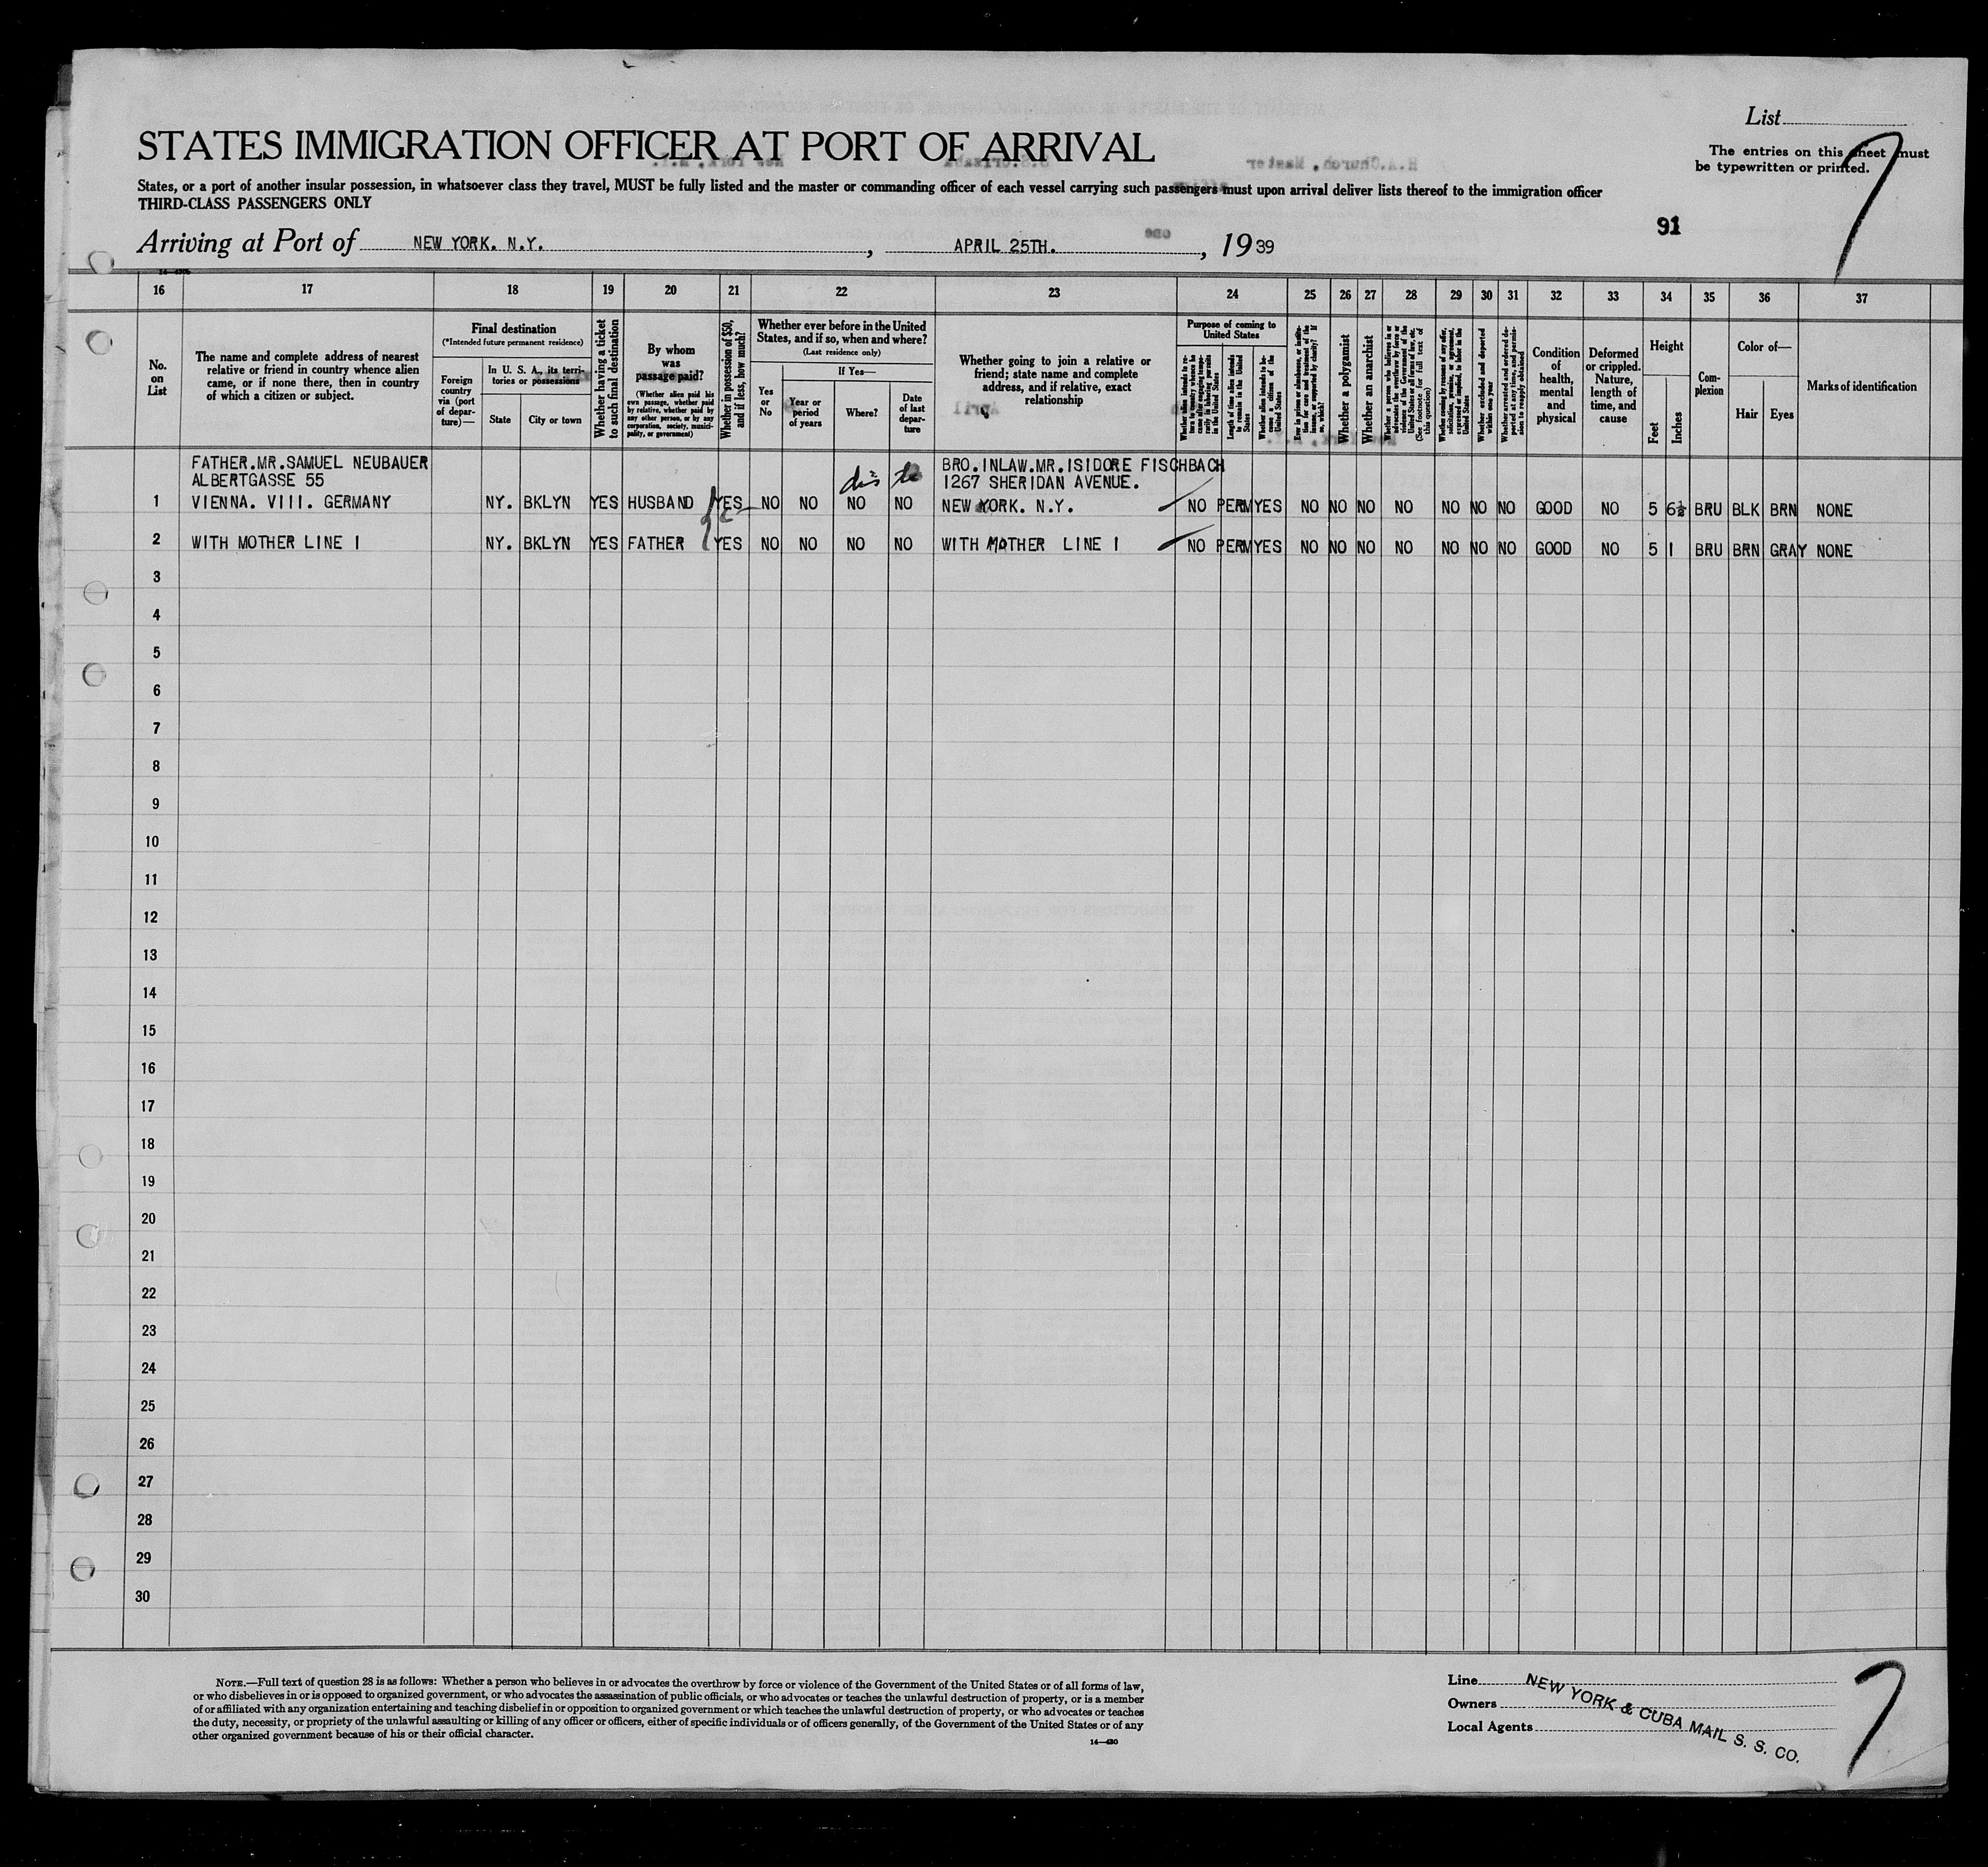 List
STATES IMMIGRATION OFFICER AT PORT OF ARRIVAL
The entries on this sheet must
be typewritten or printed.
States, or a port of another insular possession, in whatsoever class they travel, MUST be fully listed and the master or commanding officer of each vessel carrying such passengers must upon arrival deliver lists thereof to the immigration officer
THIRD-CLASS PASSENGERS ONLY
91
Arriving at Port of NEW YORK. N.Y. , APRIL 25TH. , 19 39
7
16 17 18 19 20 21 22 23 24 25 26 27 28 29 30 31 32 33 34 35 36 37
No.
on
List
The name and complete address of nearest
relative or friend in country whence alien
came, or if none there, then in country
of which a citizen or subject.
Final destination
(*Intended future permanent residence)
Foreign
country
via (port
of depar-
ture)—
In U. S. A., its terri-
tories or possessions
State
City or town
Whether having a ticket
to such final destination
By whom
was
passage paid?
(Whether alien paid his
own passage, whether paid
by relative, whether paid by
any other person, or by any
corporation, society, munici-
pality, or government)
Whether in possession of $50,
and if less, how much?
Whether ever before in the United
States, and if so, when and where?
(Last residence only)
Yes
or
No
If Yes—
Year or
period
of years
Where?
Date
of last
depar-
ture
Whether going to join a relative or
friend; state name and complete
address, and if relative, exact
relationship
Purpose of coming to
United States
Length of time alien intends
to remain in the United
States
Whether alien intends to be-
come a citizen of the
United States
Whether a polygamist
Whether an anarchist
Whether excluded and deported
within one year
Condition
of
health,
mental
and
physical
Deformed
or crippled.
Nature,
length of
time, and
cause
Height
Feet
Inches
Com-
plexion
Color of—
Hair
Eyes
Marks of identification
FATHER.MR.SAMUEL NEUBAUER BRO.INLAW.MR.ISIDORE FISCHBACH
ALBERTGASSE 55 1267 SHERIDAN AVENUE.
1 VIENNA. VIII. GERMANY NY. BKLYN YES HUSBAND YES NO NO NO NO NEW YORK. N.Y. NO PERM YES NO NO NO NO NO NO NO GOOD NO 5 6½ BRU BLK BRN NONE
2 WITH MOTHER LINE 1 NY. BKLYN YES FATHER YES NO NO NO NO WITH MOTHER LINE 1 NO PERM YES NO NO NO NO NO NO NO GOOD NO 5 1 BRU BRN GRAY NONE
3
4
5
6
7
8
9
10
11
12
13
14
15
16
17
18
19
20
21
22
23
24
25
26
27
28
29
30
NOTE.—Full text of question 28 is as follows: Whether a person who believes in or advocates the overthrow by force or violence of the Government of the United States or of all forms of law,
or who disbelieves in or is opposed to organized government, or who advocates the assassination of public officials, or who advocates or teaches the unlawful destruction of property, or is a member
of or affiliated with any organization entertaining and teaching disbelief in or opposition to organized government or which teaches the unlawful destruction of property, or who advocates or teaches
the duty, necessity, or propriety of the unlawful assaulting or killing of any officer or officers, either of specific individuals or of officers generally, of the Government of the United States or of any
other organized government because of his or their official character.
14—430
Line
Owners
Local Agents
NEW YORK & CUBA MAIL S. S. CO.
7